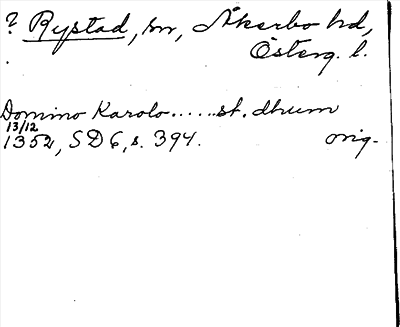 ? Rystad, sn, Åkerbo hd,
Österg. l.
Domino Karolo......st. dhum
13/12
1352, SD 6, s. 394. orig.